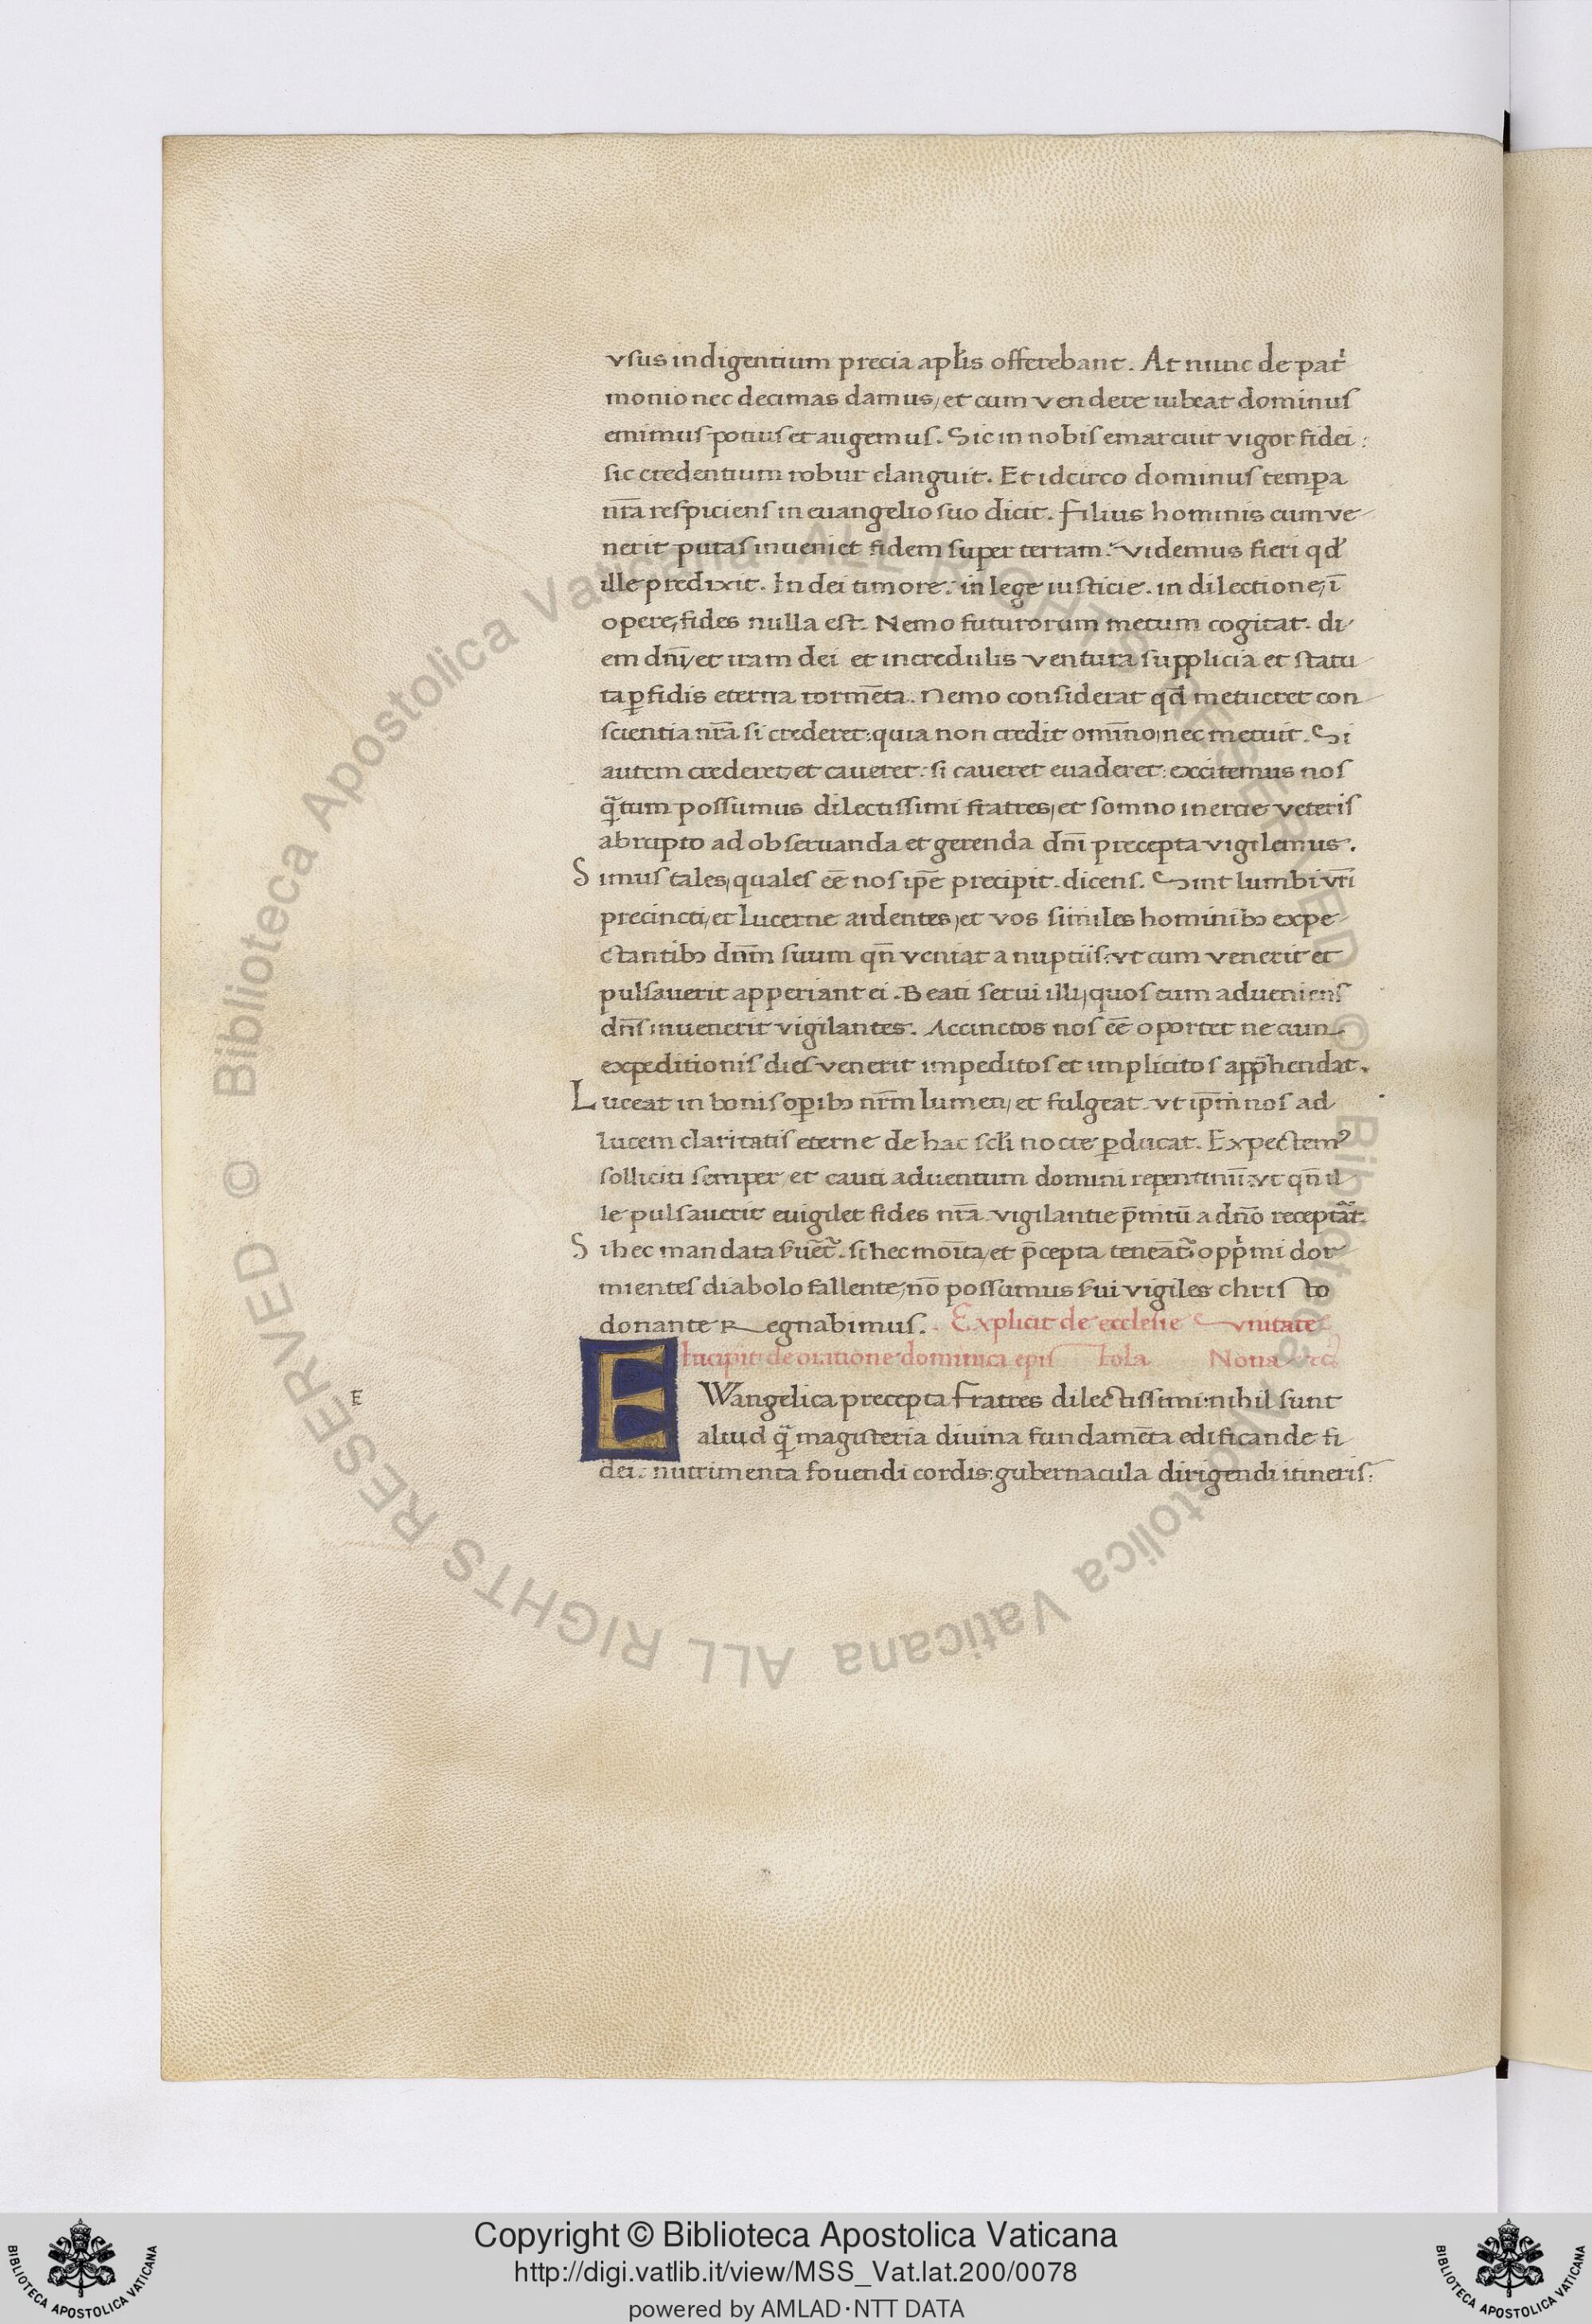 vsus indigentium precia apłis offerebant. At nunc de patⁱ
monio nec decimas damus, et cum vendere iubeat dominus
emimus potius et augemus. Sic in nobis emarcuit vigor fidei:
sic credentium robur elanguit. Et idcirco dominus tempa
nr̄a respiciens in euangelio suo dicit. filius hominis cum ve
nerit putas inueniet fidem super terram. videmus fieri qđ
ille predixit. In dei timore. in lege iusticie. in dilectione, ī
opere, fides nulla est. Nemo futurorum metum cogitat. di
em dn̄i, et iram dei et incredulis ventura supplicia et statu
ta ꝑfidis eterna tormēta. Nemo considerat qđ metueret con
scientia nr̄a si crederet: quia non credit omīno, nec metuit. Si
autem crederet, et caueret. si caueret euaderet: excitemus nos
q̄tum possumus dilectissimi fratres, et somno inercie veteris
abrupto ad obseruanda et gerenda dn̄i precepta vigilemus.
Simus tales, quales eē nos ip̄e precipit. dicens. Sint lumbi vr̄i
precincti, et lucerne ardentes, et vos similes hominibꝫ expe
ctantibꝫ dn̄m suum qn̄ veniat a nuptiis: vt cum venerit et
pulsauerit apperiant ei. Beati serui illi, quos cum adueniens
dn̄s inuenerit vigilantes. Accinctos nos eē oportet ne cum
expeditionis dies venerit impeditos et implicitos app̄hendat.
Luceat in bonis opibꝫ nr̄m lumen, et fulgeat. vt ip̄m nos ad
lucem claritatis eterne de hac scłi nocte ꝑducat. Expectemꝰ
solliciti semper, et cauti aduentum domini repentinū: vt qn̄ il
le pulsauerit euigilet fides nr̄a. vigilantie p̄miū a dn̄o receptā̃.
Si hec mandata ẜuēt̃. si hec moīta, et p̄cepta teneāt̃ oppⁱmi dor
mientes diabolo fallente, nō possumus ẜui vigiles christo
donante Regnabimus. Explicit de ecclesie vnitate
Incipit de oratione dominica epistola Nona
E
EWangelica precepta fratres dilectissimi. nihil sunt
aliud q̄ magisteria diuina fundamēta edificande fi
dei. nutrimenta fouendi cordis: gubernacula dirigendi itineris:
© Biblioteca Apostolica Vaticana ALL RIGHTS RESERVED © Biblioteca Apostolica Vaticana ALL RIGHTS RESERVED
Copyright © Biblioteca Apostolica Vaticana
http://digi.vatlib.it/view/MSS_Vat.lat.200/0078
powered by AMLAD·NTT DATA
BIBLIOTECA APOSTOLICA VATICANA
BIBLIOTECA APOSTOLICA VATICANA